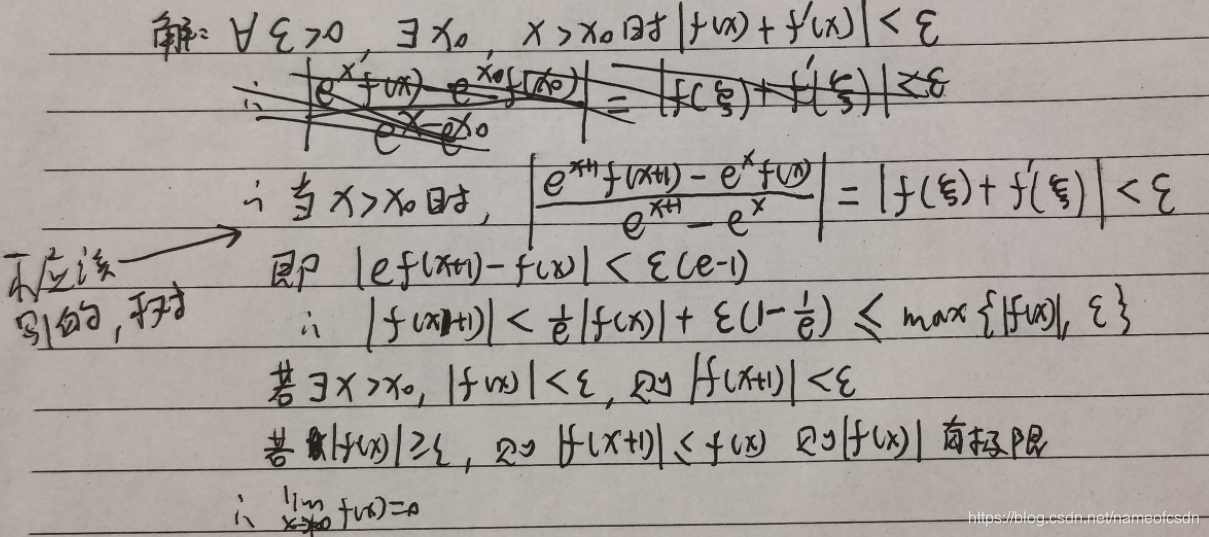 解: ∀ε>0, ∃x₀, x>x₀时 |f(x)+f'(x)|<ε
∴ |(e^x f(x) - e^{x₀} f(x₀))/(e^x - e^{x₀})| = |f(ξ)+f'(ξ)|<ε
∴ 当x>x₀时, |(e^{x+1} f(x+1) - e^x f(x))/(e^{x+1} - e^x)| = |f(ξ)+f'(ξ)|<ε
不应该
引的, 我
即 |ef(x+1)-f(x)|<ε(e-1)
∴ |f(x+1)|<1/e|f(x)|+ε(1-1/e) ≤ max{|f(x)|, ε}
若∃x>x₀, |f(x)|<ε, 则|f(x+1)|<ε
若|f(x)|≥ε, 则|f(x+1)|≤f(x) 则|f(x)| 有极限
∴ lim x→∞ f(x)=0
https://blog.csdn.net/nameofcsdn